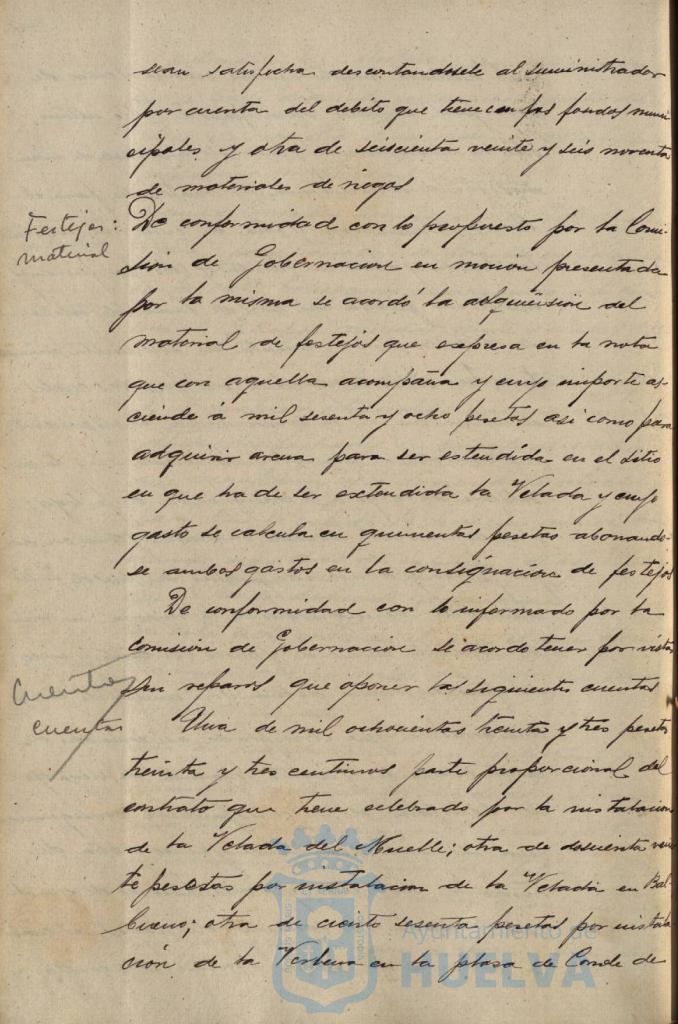 sean satisfecha descontandosele al suministrador
por cuenta del debito que tiene con los fondos muni
cipales y otra de seiscienta veinte y seis noventa
de materiales de riegos
Festejos:
material
De conformidad con lo propuesto por la Comi-
sion de Gobernacion en mocion presentada
por la misma se acordó la adquisision del
material de festejos que expresa en la nota
que con aquella acompaña y cuyo importe as-
ciende á mil sesenta y ocho pesetas asi como para
adquirir arena para ser estendida en el sitio
en que ha de ser extendida la Velada y cuyo
gasto se calcula en quinientas pesetas abonando-
se ambos gastos en la consignacion de festejos
De conformidad con lo informado por la
Comisión de Gobernacion se acordo tener por vistas
sin reparos que oponer las siguientes cuentas
Cuentas
cuentas
Una de mil ochocientas treinta y tres pesetas
treinta y tres centimos parte proporcional del
contrato que tiene celebrado por la instalacion
de la Velada del Muelle; otra de doscienta vein
te pesetas por instalacion de la Velada en Bal-
bueno; otra de ciento sesenta pesetas por instala
ción de la Verbena en la plasa de Conde de
Ayuntamiento de
HUELVA